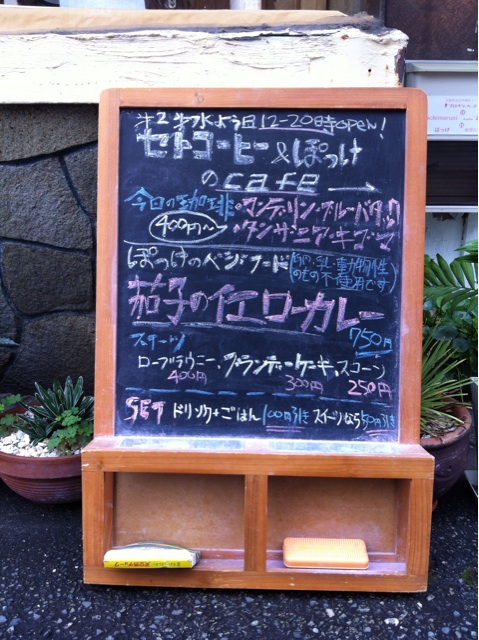 第2第4水よう日12-20時open!
セトコーヒー&ぽっけ
のcafe →
今日の珈琲・マンデリン・ブルーバタック
400円~ ・タンザニア・キゴマ
ぽっけのベジフード(卵・乳・動物性のもの不使用です)
茄子のイエローカレー
750円
スイーツ
ローブラウニー、ブランデーケーキ、スコーン
400円 300円 250円
SET ドリンク+ごはん100円引き スイーツなら50円引き